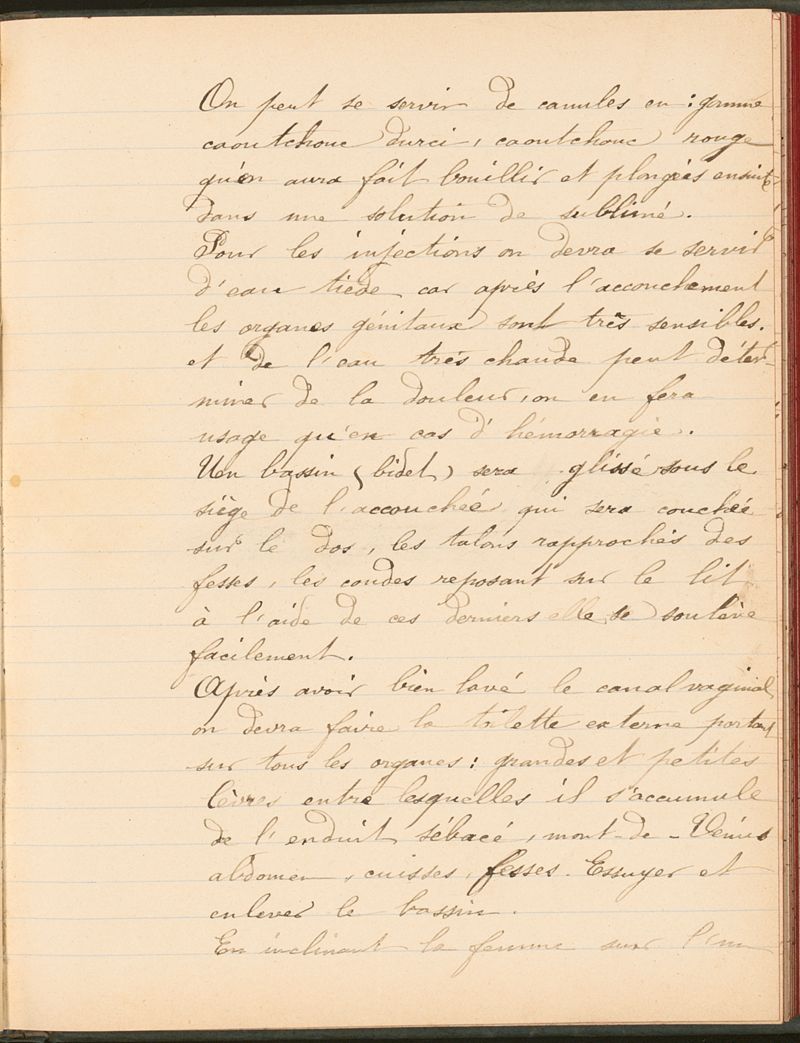 On peut se servir de canules en : gomme
caoutchouc durci, caoutchouc rouge
qu'on aura fait bouillir et plongées ensuite
dans une solution de sublimé.
Pour les injections on devra se servir
d'eau tiède car après l'accouchement
les organes génitaux sont très sensibles.
et de l'eau très chaude peut déter-
miner de la douleur, on en fera
usage qu'en cas d'hémorragie.
Un bassin (bidet) sera glissé sous le
siège de l'accouchée qui sera couchée
sur le dos, les talons rapprochés des
fesses, les coudes reposant sur le lit
à l'aide de ces derniers elle se soulève
facilement.
Après avoir bien lavé le canal vaginal
on devra faire la toilette externe portant
sur tous les organes : grandes et petites
lèvres entre lesquelles il s'accumule
de l'enduit sébacé, mont-de-Vénus
abdomen, cuisses, fesses. Essuyer et
enlever le bassin.
En inclinant la femme sur l'un